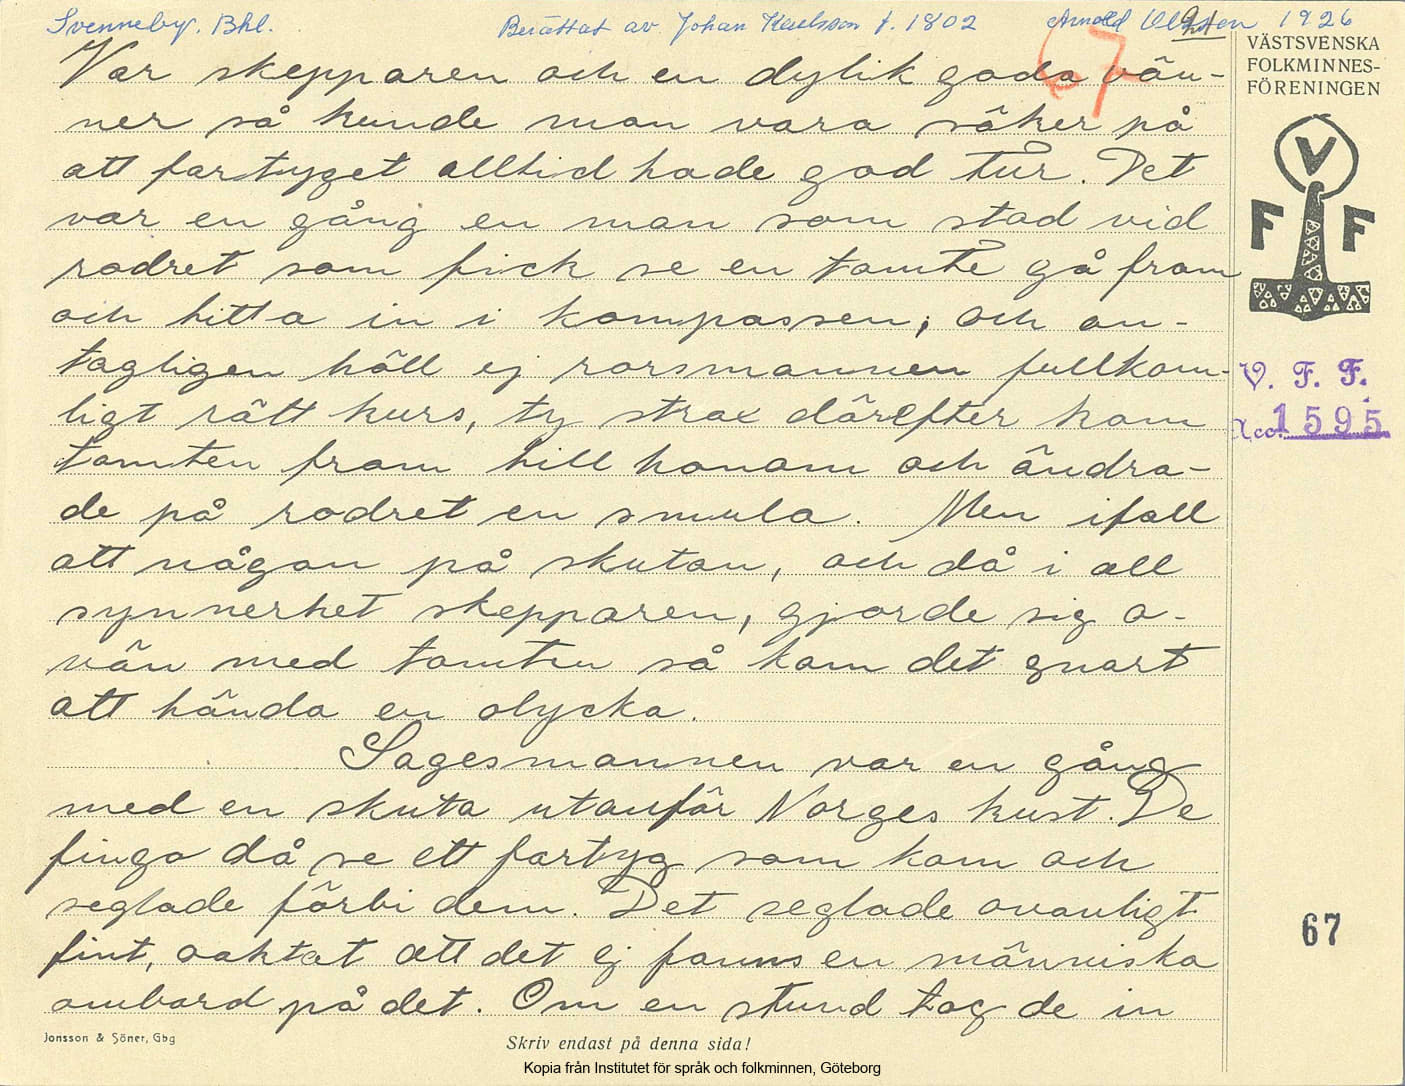 Svenneby. Bhl. Berättat av Johan Karlsson f. 1802 Arnold Olsson 1926
67
VÄSTSVENSKA
FOLKMINNES-
FÖRENINGEN
Var skepparen och en dylik goda vän-
ner så kunde man vara säker på
att fartyget alltid hade god tur. Det
var en gång en man som stod vid
rodret som fick se en tomte gå fram
och titta in i kompassen, och an-
tagligen höll ej rorsmannen fullkom-
ligt rätt kurs, ty strax därefter kom
tomten fram till honom och ändra-
de på rodret en smula. Men ifall
att någon på skutan, och då i all
synnerhet skepparen, gjorde sig o-
vän med tomten så kom det snart
att hända en olycka.
Sagesmannen var en gång
med en skuta utanför Norges kust. De
fingo då se ett fartyg som kom och
seglade förbi dem. Det seglade ovanligt
fint, oaktat att det ej fanns en människa
ombord på det. Om en stund tog de in
V
F F
V. F. F.
Acc. 1595
67
Jonsson & Söner, Gbg
Skriv endast på denna sida!
Kopia från Institutet för språk och folkminnen, Göteborg